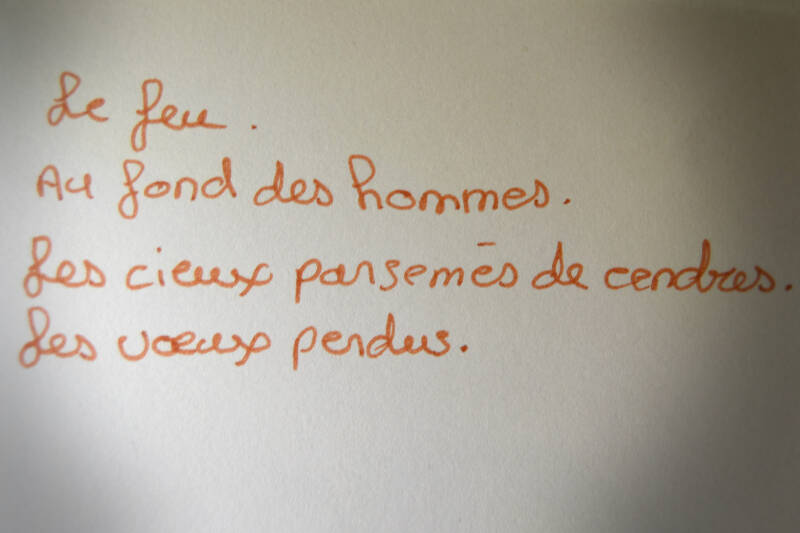 Le feu.
Au fond des hommes.
Les cieux parsemés de cendres.
Les vœux perdus.